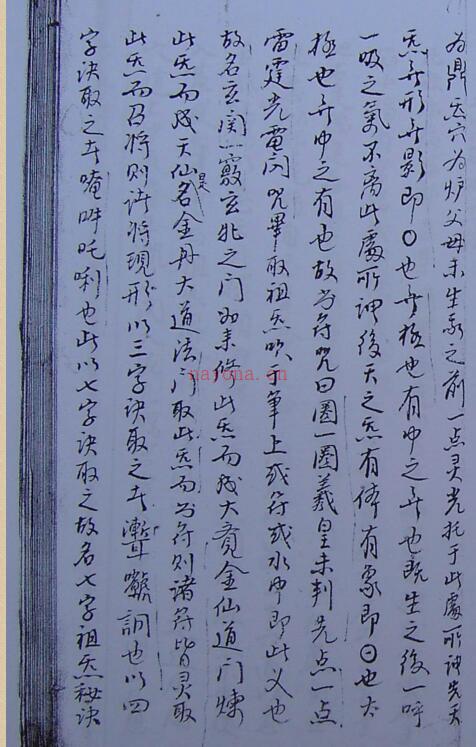 为鼎玄穴为炉父母未生前之前一点灵光托于此处所谓先天
炁无形无影即〇也无极也有中之无也既生之后一呼
一吸之气不离此处所谓后天之炁有体有象即⊙也太
极也无中之有也故书符咒曰圈一圈羲皇未判先点一点
雷霆光电闪咒毕取祖炁吹于笔上或符或水中即此义也
故名玄关一窍玄牝之门如来修此炁而成大觉金仙道门炼
此炁而成天仙是名金丹大道法门取此炁而书符则诸符皆灵取
此炁而召将则诸将现形以三字诀取之者也以四
字诀取之者唵吽吒唎也此以七字诀取之故名七字祖炁秘诀
nayona.cn